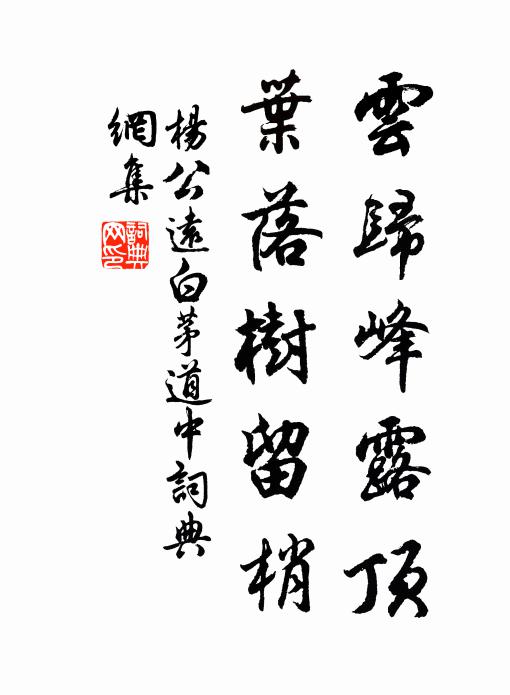 雲歸峰露頂
葉落樹留梢
楊公遠白茅道中詞典
網集
詞典
网印